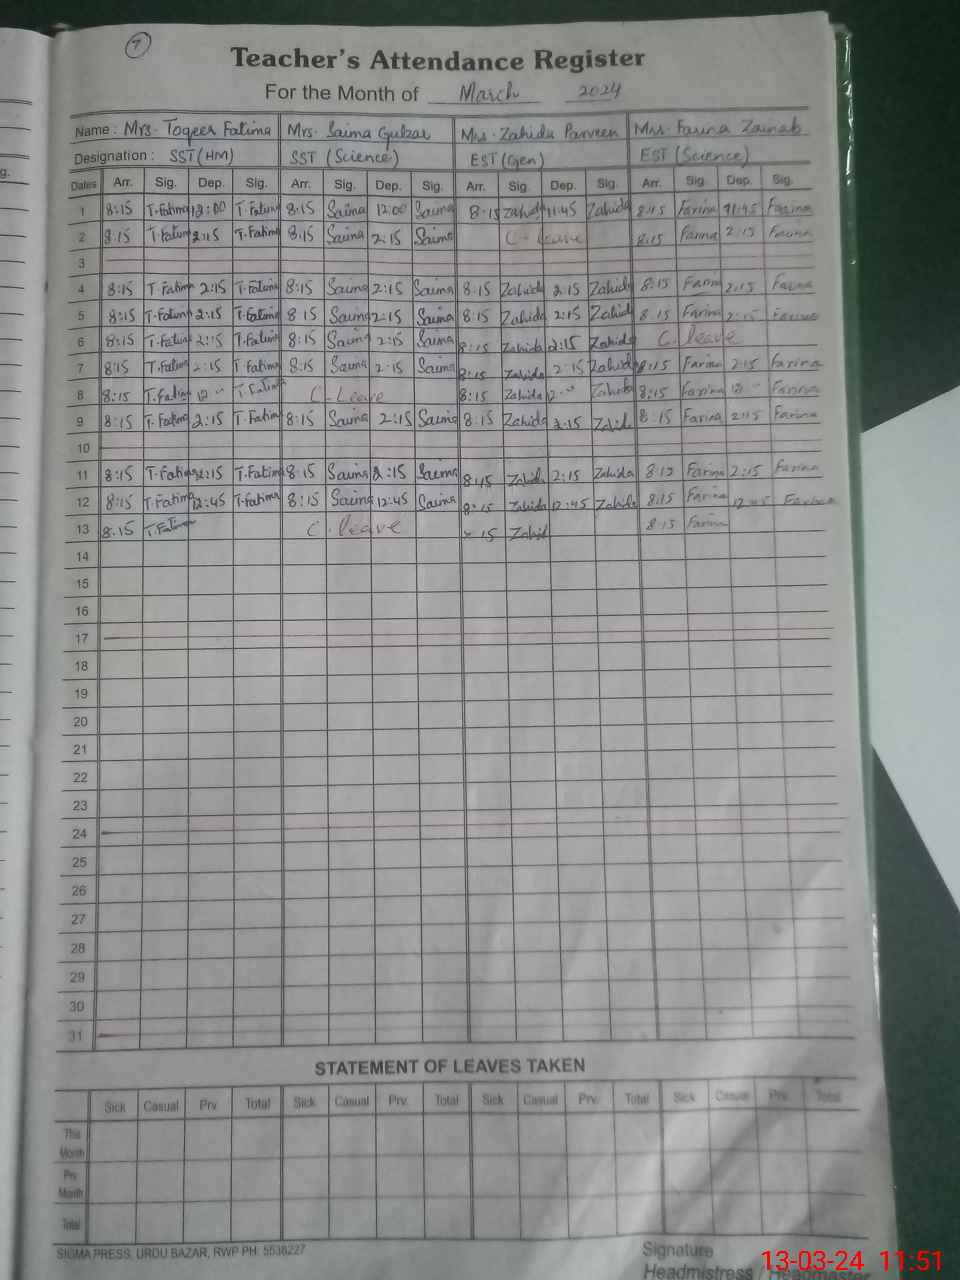 7
Teacher's Attendance Register
For the Month of March 2024
Name: Mrs. Toqeer Fatima Mrs. Saima Gulzar Mrs. Zahida Parveen Mrs. Farina Zainab
Designation: SST (HM) SST (Science) EST (Gen) EST (Science)
Dates Arr. Sig. Dep. Sig. Arr. Sig. Dep. Sig. Arr. Sig. Dep. Sig. Arr. Sig. Dep. Sig.
1 8:15 T.Fatima 12:00 T.Fatima 8:15 Saima 12:00 Saima 8:15 Zahida 11:45 Zahida 8:15 Farina 11:45 Farina
2 8:15 T.Fatima 2:15 T.Fatima 8:15 Saima 2:15 Saima C-leave 8:15 Farina 2:15 Farina
3
4 8:15 T.Fatima 2:15 T.Fatima 8:15 Saima 2:15 Saima 8:15 Zahida 2:15 Zahida 8:15 Farina 2:15 Farina
5 8:15 T.Fatima 2:15 T.Fatima 8:15 Saima 2:15 Saima 8:15 Zahida 2:15 Zahida 8:15 Farina 2:15 Farina
6 8:15 T.Fatima 2:15 T.Fatima 8:15 Saima 2:15 Saima 8:15 Zahida 2:15 Zahida C.leave
7 8:15 T.Fatima 2:15 T.Fatima 8:15 Saima 2:15 Saima 8:15 Zahida 2:15 Zahida 8:15 Farina 2:15 Farina
8 8:15 T.Fatima T.Fatima C-Leave 8:15 Zahida Zahida 8:15 Farina Farina
9 8:15 T.Fatima 2:15 T.Fatima 8:15 Saima 2:15 Saima 8:15 Zahida 2:15 Zahid 8:15 Farina 2:15 Farina
10
11 8:15 T.Fatima 2:15 T.Fatima 8:15 Saima 2:15 Saima 8:15 Zahid 2:15 Zahida 8:15 Farina 2:15 Farina
12 8:15 T.Fatima 12:45 T.Fatima 8:15 Saima 12:45 Saima 8:15 Zahida 12:45 Zahida 8:15 Farina 12:45 Farina
13 8:15 T.Fatima C.leave 8:15 Zahid 8:15 Farina
14
15
16
17
18
19
20
21
22
23
24
25
26
27
28
29
30
31
STATEMENT OF LEAVES TAKEN
Sick Casual Prv. Total Sick Casual Prv. Total Sick Casual Prv. Total Sick Casual Prv. Total
This Month
Prv Month
Total
SIGMA PRESS, URDU BAZAR, RWP PH: 5538227
Signature
Headmistress / Headmaster
13-03-24 11:51